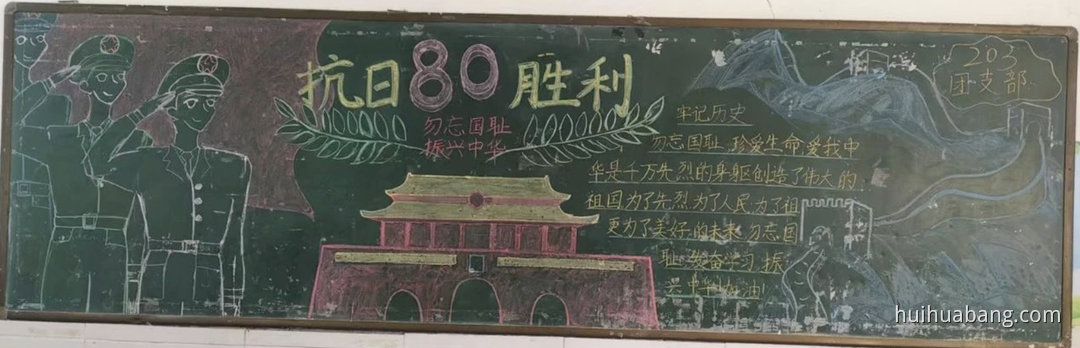 抗日80胜利
勿忘国耻
振兴中华
203
团支部
牢记历史
勿忘国耻 珍爱生命 爱我中
华是千万先烈的身躯创造了伟大的
祖国为了先烈为了人民为了祖
更为了美好的未来 勿忘国
耻 发奋学习 振
兴中华加油!
huihuabang.com